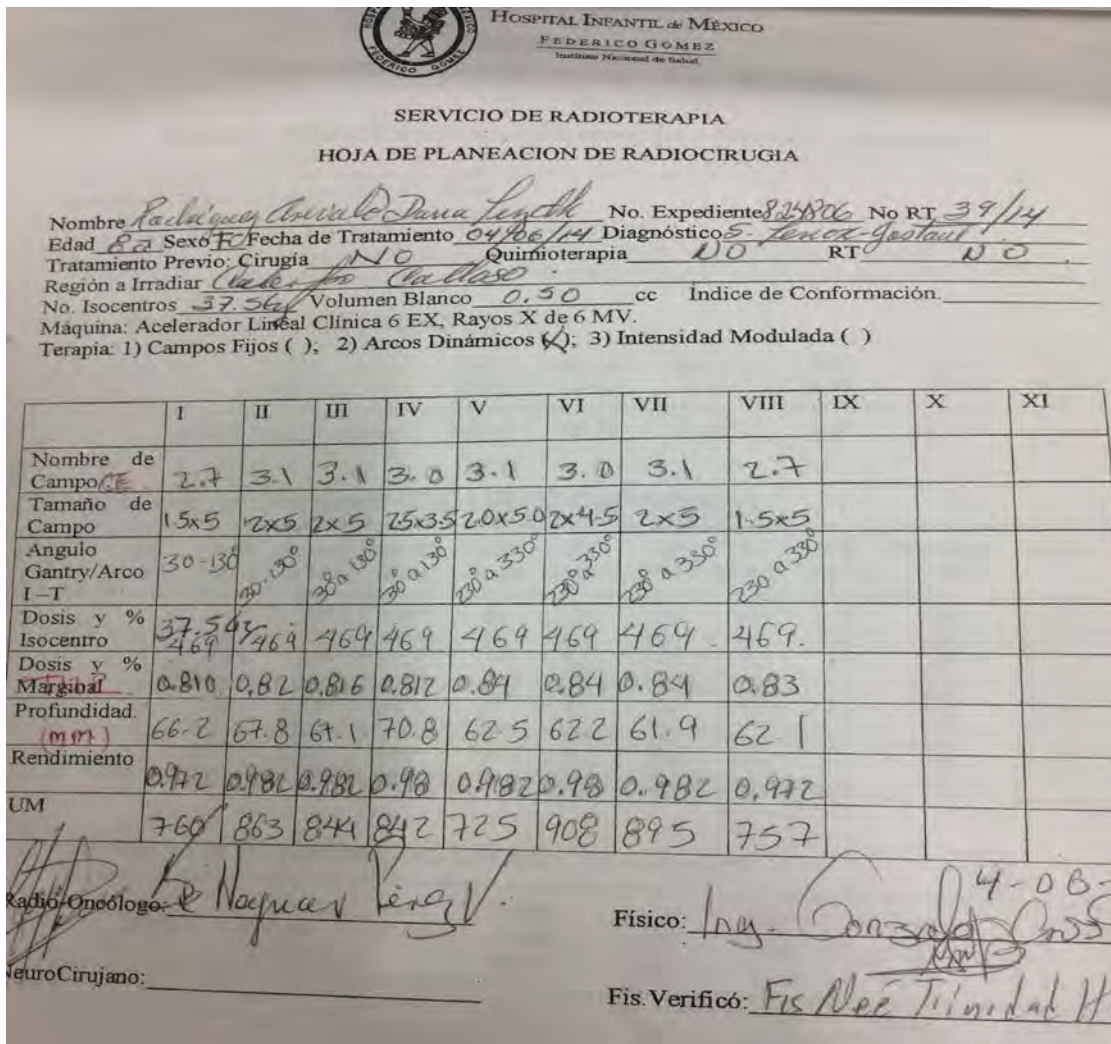 HOSPITAL INFANTIL de MÉXICO
FEDERICO GOMEZ
Instituto Nacional de Salud
FEDERICO GOMEZ
SERVICIO DE RADIOTERAPIA
HOJA DE PLANEACION DE RADIOCIRUGIA
Nombre Dana No. Expediente 824806 No RT 39/14
Edad 8a Sexo F Fecha de Tratamiento 04/06/14 Diagnóstico S.
Tratamiento Previo: Cirugía NO Quimioterapia NO RT NO
Región a Irradiar
No. Isocentros 37.5Gy Volumen Blanco 0.50 cc Índice de Conformación.
Máquina: Acelerador Lineal Clínica 6 EX, Rayos X de 6 MV.
Terapia: 1) Campos Fijos ( ); 2) Arcos Dinámicos (X); 3) Intensidad Modulada ( )
I II III IV V VI VII VIII IX X XI
Nombre de Campo CE 2.7 3.1 3.1 3.0 3.1 3.0 3.1 2.7
Tamaño de Campo 1.5x5 2x5 2x5 25x3.5 2.0x5.0 2x4.5 2x5 1.5x5
Angulo Gantry/Arco I –T 30-130 30-130° 30° a 130° 30° a 130° 230° a 330° 230° a 330° 230° a 330° 230 a 330°
Dosis y % Isocentro 37.5Gy 469 469 469 469 469 469 469 469.
Dosis y % Marginal 0.810 0.82 0.816 0.812 0.84 0.84 0.84 0.83
Profundidad. (mm) 66.2 67.8 67.1 70.8 62.5 62.2 61.9 62.1
Rendimiento 0.972 0.982 0.982 0.98 0.982 0.98 0.982 0.972
UM 760 863 844 842 725 908 895 757
Radio-Oncólogo:
Físico: Ing. Gonzalo
NeuroCirujano:
Fis. Verificó: Fis Trinidad H